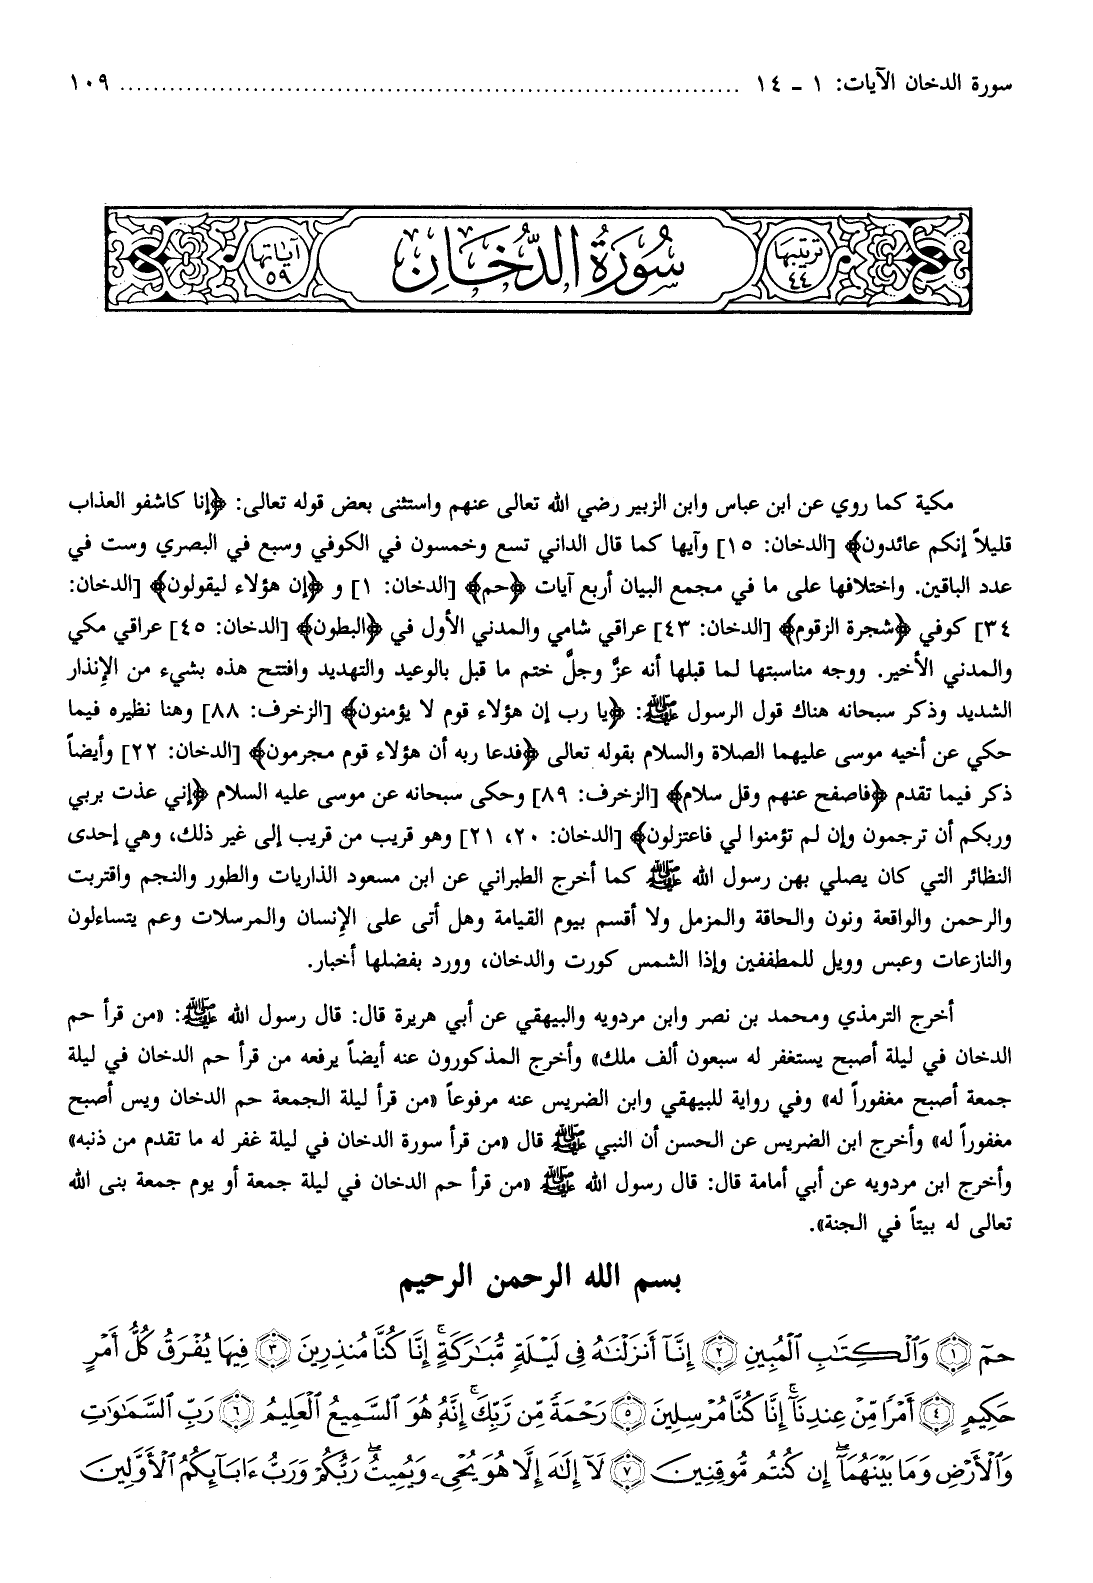 سورة الدخان الآيات: ١ - ١٤ ........................................................................ ١٠٩
ترتيبها ٤٤
سُورَةُ الدُّخَانِ
آياتها ٥٩
مكية كما روي عن ابن عباس وابن الزبير رضي الله تعالى عنهم واستثنى بعض قوله تعالى: ﴿إنا كاشفو العذاب
قليلاً إنكم عائدون﴾ [الدخان: ١٥] وآيها كما قال الداني تسع وخمسون في الكوفي وسبع في البصري وست في
عدد الباقين. واختلافها على ما في مجمع البيان أربع آيات ﴿حم﴾ [الدخان: ١] و ﴿إن هؤلاء ليقولون﴾ [الدخان:
٣٤] كوفي ﴿شجرة الزقوم﴾ [الدخان: ٤٣] عراقي شامي والمدني الأول في ﴿البطون﴾ [الدخان: ٤٥] عراقي مكي
والمدني الأخير. ووجه مناسبتها لما قبلها أنه عزَّ وجلَّ ختم ما قبل بالوعيد والتهديد وافتتح هذه بشيء من الإنذار
الشديد وذكر سبحانه هناك قول الرسول ﷺ: ﴿يا رب إن هؤلاء قوم لا يؤمنون﴾ [الزخرف: ٨٨] وهنا نظيره فيما
حكي عن أخيه موسى عليهما الصلاة والسلام بقوله تعالى ﴿فدعا ربه أن هؤلاء قوم مجرمون﴾ [الدخان: ٢٢] وأيضاً
ذكر فيما تقدم ﴿فاصفح عنهم وقل سلام﴾ [الزخرف: ٨٩] وحكى سبحانه عن موسى عليه السلام ﴿إني عذت بربي
وربكم أن ترجمون وإن لم تؤمنوا لي فاعتزلون﴾ [الدخان: ٢٠، ٢١] وهو قريب من قريب إلى غير ذلك، وهي إحدى
النظائر التي كان يصلي بهن رسول الله ﷺ كما أخرج الطبراني عن ابن مسعود الذاريات والطور والنجم واقتربت
والرحمن والواقعة ونون والحاقة والمزمل ولا أقسم بيوم القيامة وهل أتى على الإنسان والمرسلات وعم يتساءلون
والنازعات وعبس وويل للمطففين وإذا الشمس كورت والدخان، وورد بفضلها أخبار.
أخرج الترمذي ومحمد بن نصر وابن مردويه والبيهقي عن أبي هريرة قال: قال رسول الله ﷺ: «من قرأ حم
الدخان في ليلة أصبح يستغفر له سبعون ألف ملك» وأخرج المذكورون عنه أيضاً يرفعه من قرأ حم الدخان في ليلة
جمعة أصبح مغفوراً له» وفي رواية للبيهقي وابن الضريس عنه مرفوعاً «من قرأ ليلة الجمعة حم الدخان ويس أصبح
مغفوراً له» وأخرج ابن الضريس عن الحسن أن النبي ﷺ قال «من قرأ سورة الدخان في ليلة غفر له ما تقدم من ذنبه»
وأخرج ابن مردويه عن أبي أمامة قال: قال رسول الله ﷺ «من قرأ حم الدخان في ليلة جمعة أو يوم جمعة بنى الله
تعالى له بيتاً في الجنة».
بسم الله الرحمن الرحيم
حمٓ ﴿١﴾ وَٱلْكِتَٰبِ ٱلْمُبِينِ ﴿٢﴾ إِنَّآ أَنزَلْنَٰهُ فِى لَيْلَةٍ مُّبَٰرَكَةٍۚ إِنَّا كُنَّا مُنذِرِينَ ﴿٣﴾ فِيهَا يُفْرَقُ كُلُّ أَمْرٍ
حَكِيمٍ ﴿٤﴾ أَمْرًا مِّنْ عِندِنَآۚ إِنَّا كُنَّا مُرْسِلِينَ ﴿٥﴾ رَحْمَةً مِّن رَّبِّكَۚ إِنَّهُۥ هُوَ ٱلسَّمِيعُ ٱلْعَلِيمُ ﴿٦﴾ رَبِّ ٱلسَّمَٰوَٰتِ
وَٱلْأَرْضِ وَمَا بَيْنَهُمَآۖ إِن كُنتُم مُّوقِنِينَ ﴿٧﴾ لَآ إِلَٰهَ إِلَّا هُوَ يُحْىِۦ وَيُمِيتُۖ رَبُّكُمْ وَرَبُّ ءَابَآئِكُمُ ٱلْأَوَّلِينَ